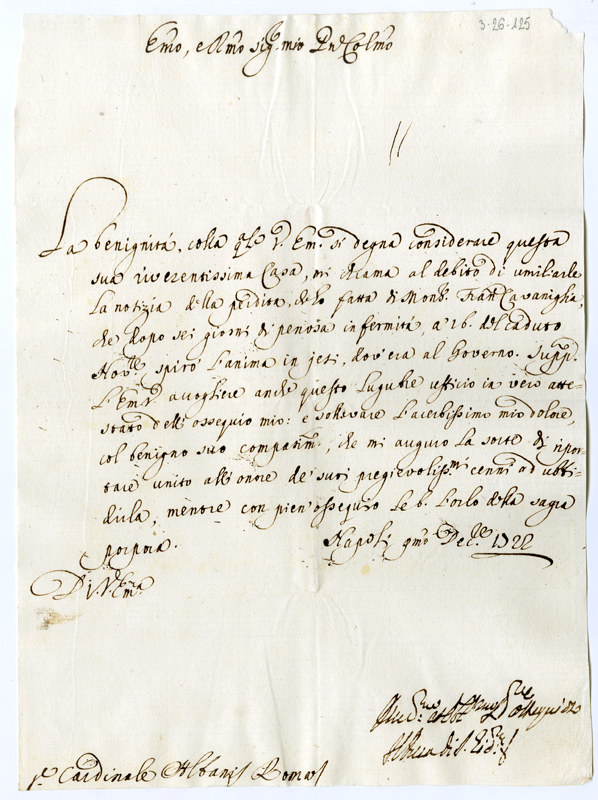 3-26-125
Emo, e Rmo Sig.r mio P.rone Colmo
La benignità, colla q.le V. Em. si degna considerare questa
sua riverentissima Casa, mi chiama al debito di umiliarle
la notizia della perdita, che ho fatta di Mons. Frat. Cavaniglia,
che dopo sei giorni di penosa infermità, a' 26. del caduto
Nov.re spirò l'anima in Jesi, dov'era al Governo. Supp.
l'Em. V. accogliere anche questo lugubre ufficio in vero atte-
stato dell'ossequio mio: e sollevare l'acerbissimo mio dolore,
col benigno suo compatim.to, che mi auguro la sorte di ripor-
tare unito all'onore de' suoi pregevoliss.mi cenni ad ubbi-
dirla, mentre con pien'ossequio le b. l'orlo della sagra
porpora. Napoli pmo Dec.re 1722
Di V. Em.a
S.r Cardinale Albani Roma